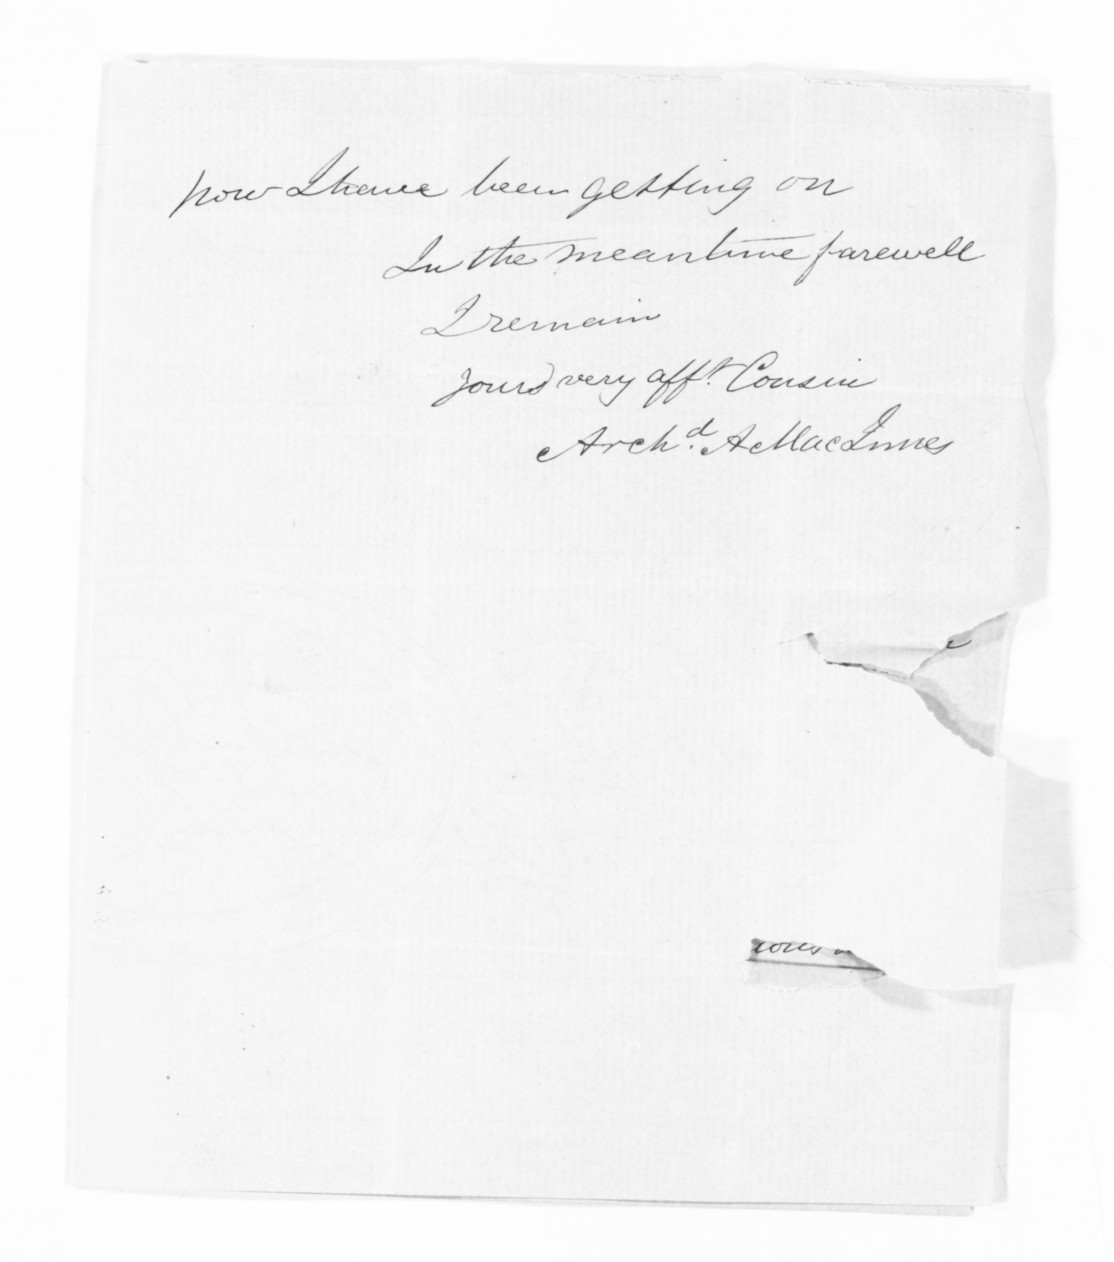 how I have been getting on
In the meantime farewell
I remain
Yours very afft. Cousin
Archd. A MacInnes